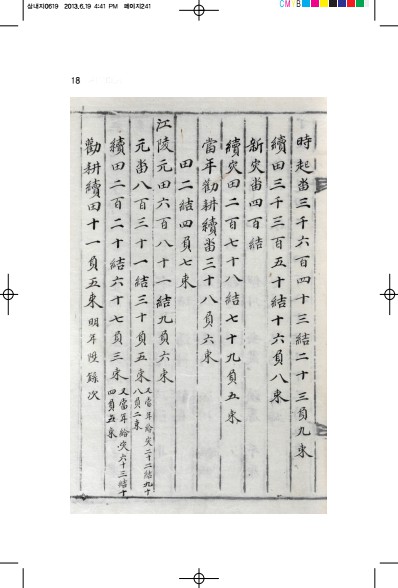 삼내지0619 2013.6.19 4:41 PM 페이지241
CM B
18
時起畓三千六百四十三結二十三負九束
續田三千三百五十結十六負八束
新灾畓四百結
續灾田二百七十八結七十九負五束
當年勸耕續畓三十八負六束
田二結四負七束
江陵元田六百八十一結九負六束
元畓八百三十一結三十負五束 又當年給灾二十二結九十
八負二束
續田二百二十結六十七負三束 又當年給灾六十三結十
四負五束
勸耕續田十一負五束 明年區錄次